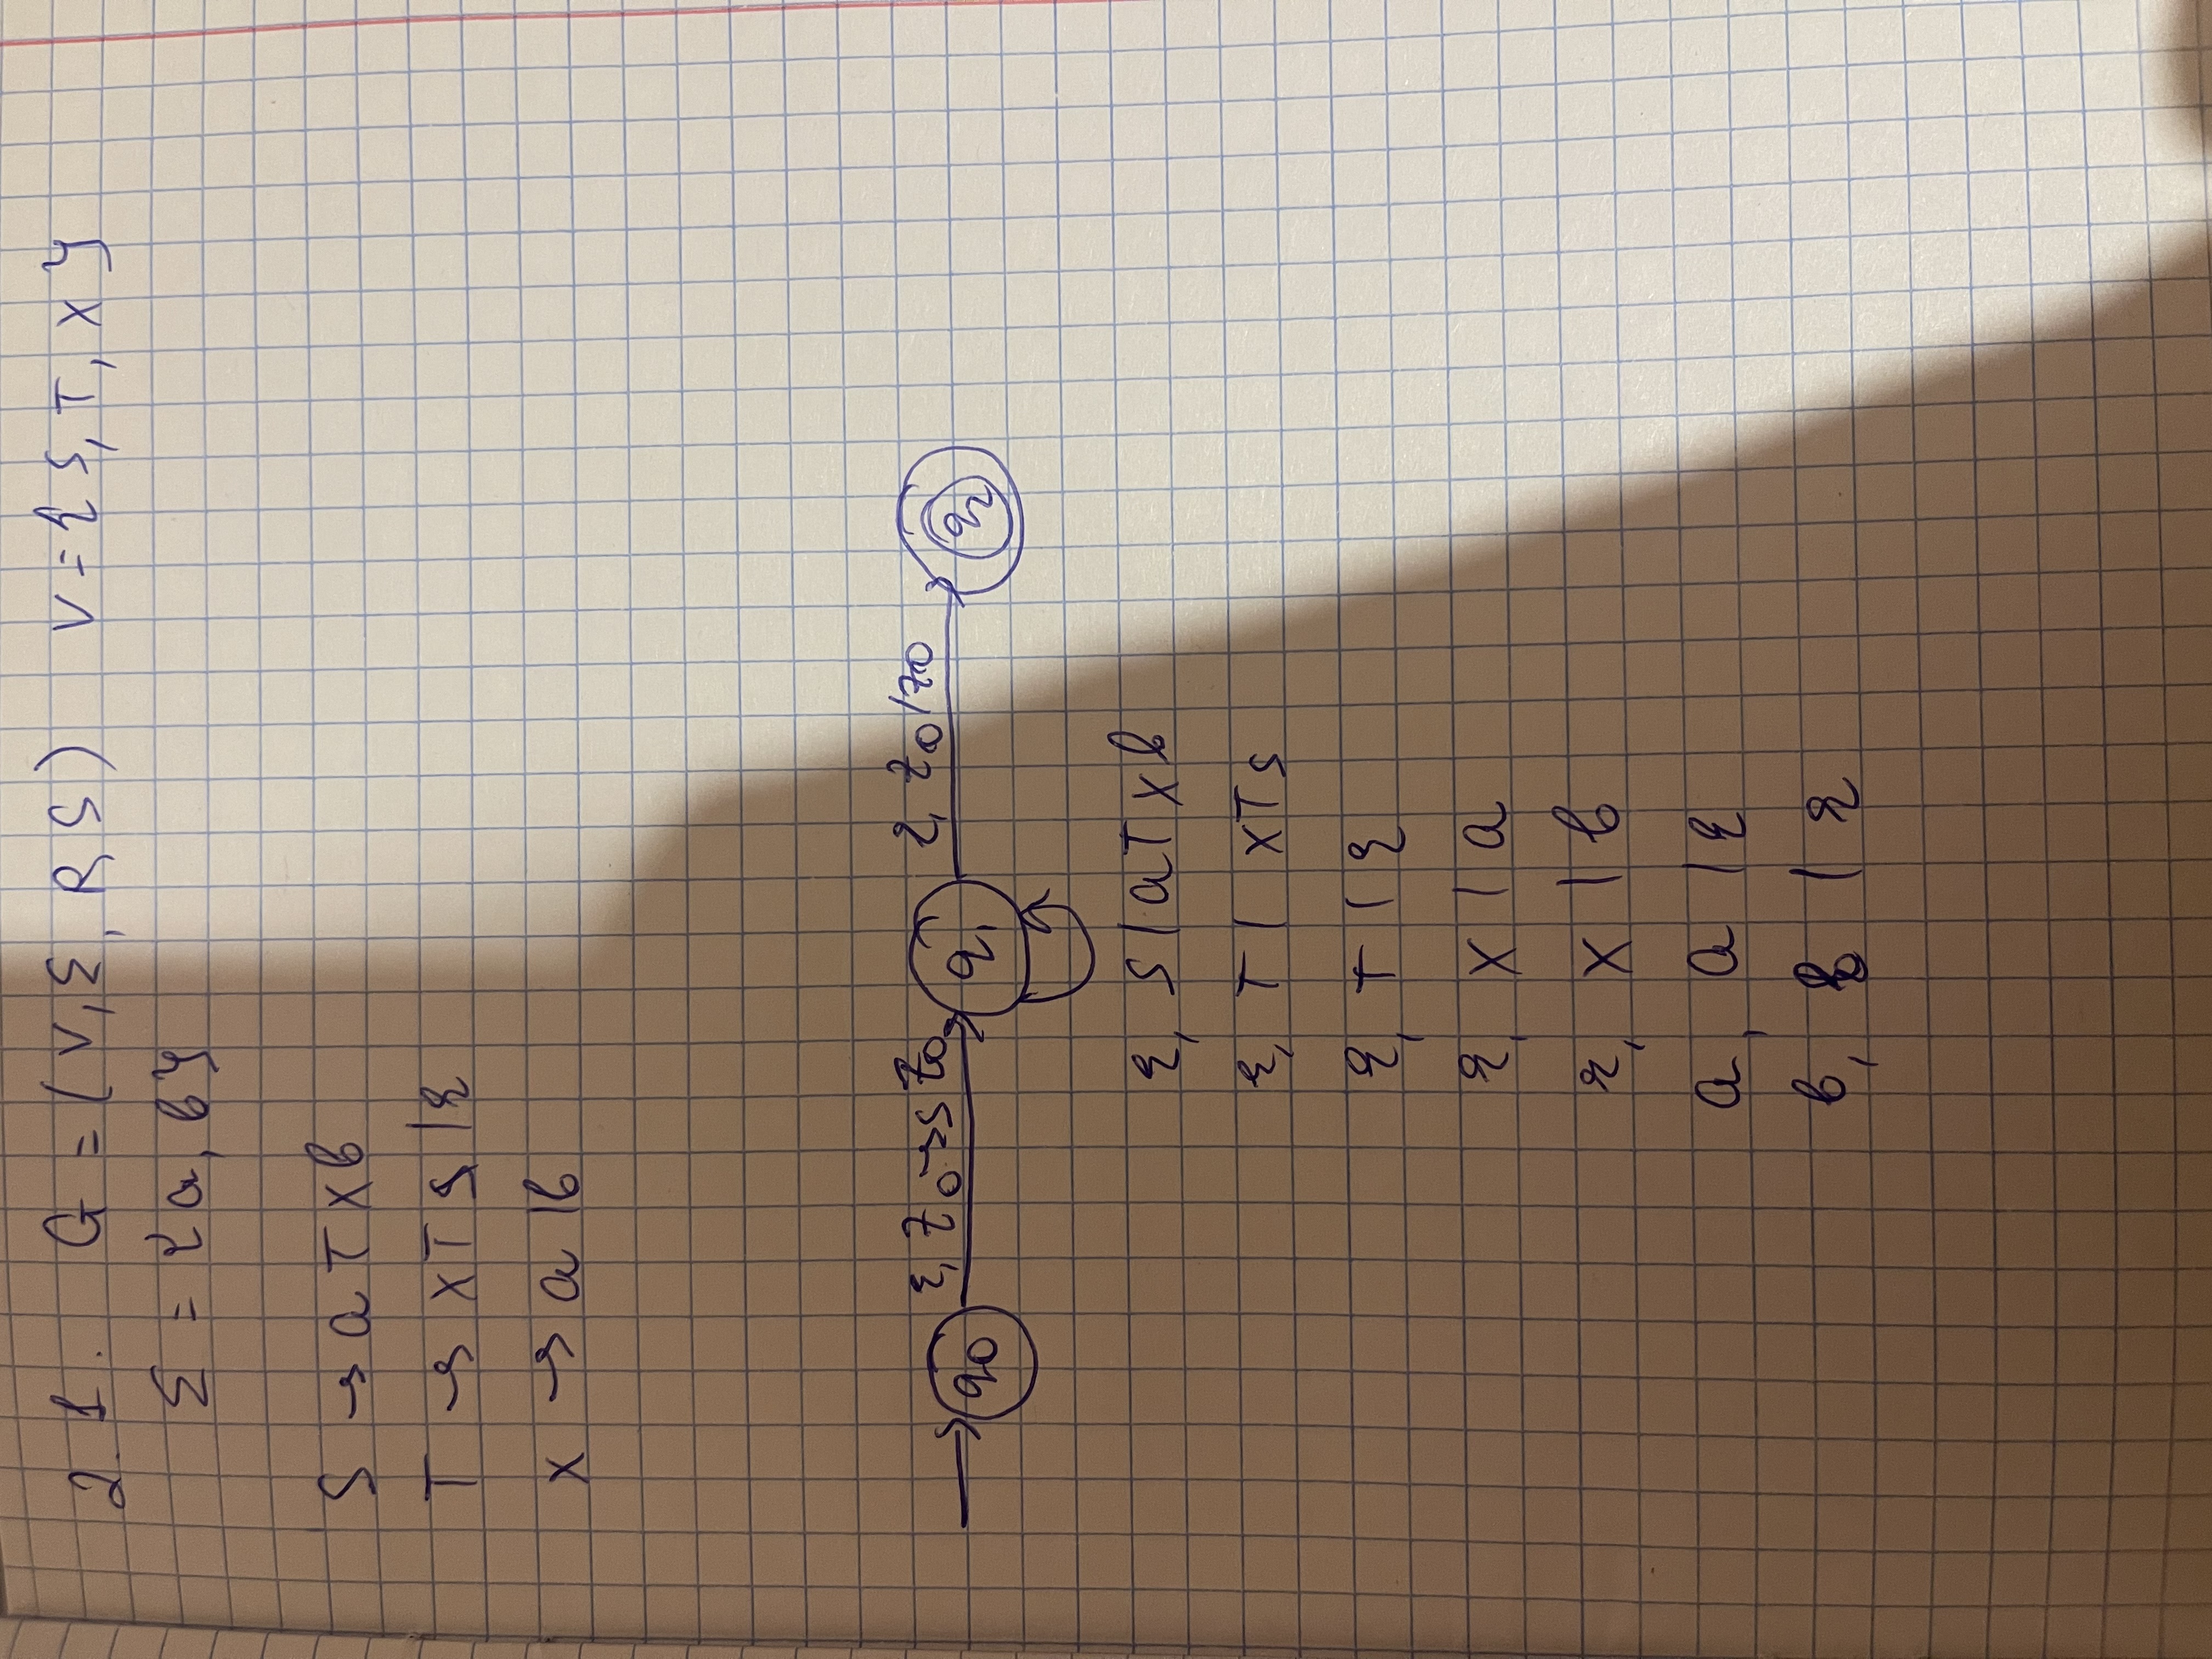 2.1. G = (V, Σ, R, S) V = {S, T, X}
Σ = {a, b}
S → aTXb
T → XTS | ε
X → a | b
ε, Z₀ → S Z₀ ε, Z₀ / Z₀
q₀ q₁ q₂
ε, S | aTXb
ε, T | XTS
ε, T | ε
ε, X | a
ε, X | b
a, a | ε
b, b | ε